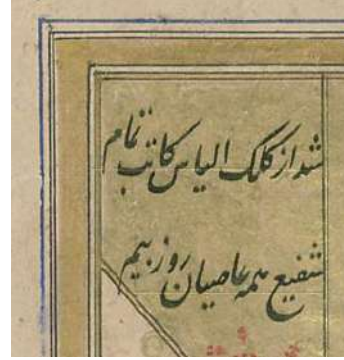 شد از کلک الیاس کاتب تمام
شفیع همه عاصیان روز بیم